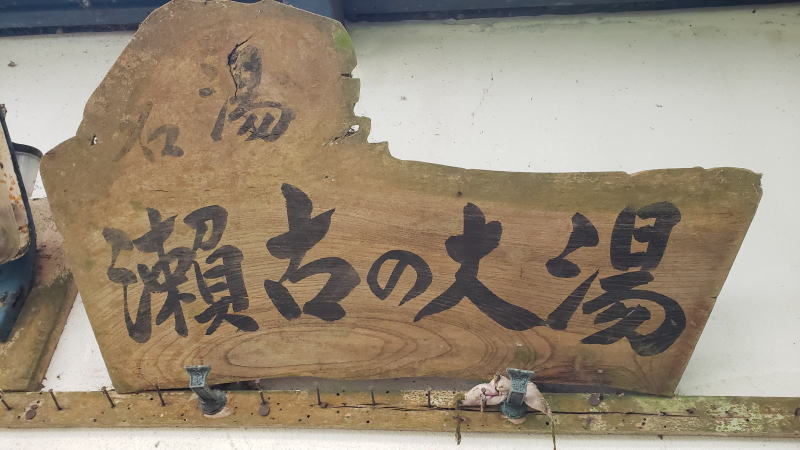 石湯
瀬古の大湯